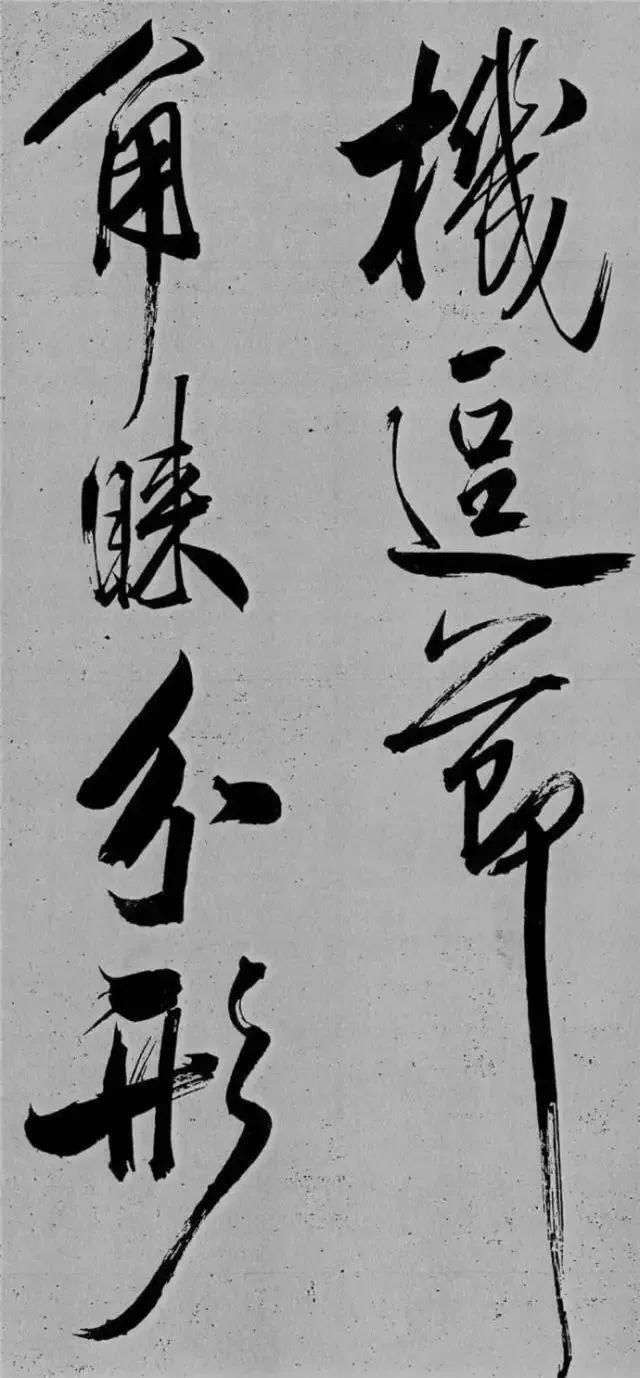 機逗節
角睐分形